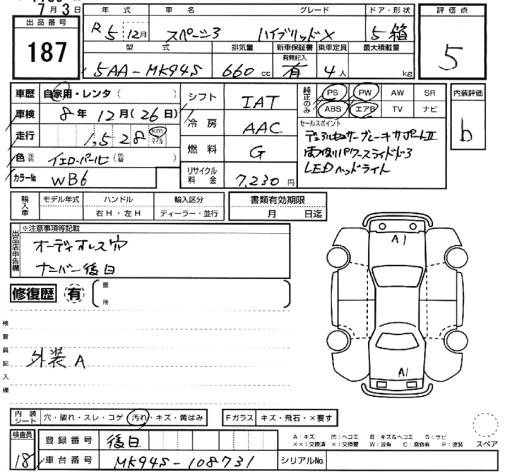 7月3日
出品番号 年式 車名 グレード ドア・形状 評価点
187 R5年12月 スペーシア ハイブリッドX 5箱 5
型式 排気量 新車保証書 乗車定員 最大積載量
有無記入
5AA-MK94S 660cc 有 4人 kg
車歴 自家用・レンタ( ) シフト IAT 純正のみ PS PW AW SR 内装評価
ABS エアB TV ナビ
車検 8年12月(26日) 冷房 AAC セールスポイント b
走行 1,528 km マイル デュアルセンサーブレーキサポートII
色 イエローパール( ) 燃料 G 両側パワースライドドア
カラーNo WB6 リサイクル料金 7,230円 LEDヘッドライト
輸入車 モデル年式 ハンドル 輸入区分 書類有効期限
年 右H・左H ディーラー・並行 月 日迄
出品店申告欄 ※注意事項等記載
オーディオレス穴
ナンバー後日
修復歴 有 箇所
検査員記入欄
外装A
A1
A1
内装シート 穴・破れ・スレ・コゲ 汚れ・キズ・黄ばみ Fガラス キズ・飛石・×要す
検査員 登録番号 後日
18 車台番号 MK94S-108731 シリアルNo.
A:キズ
スペア